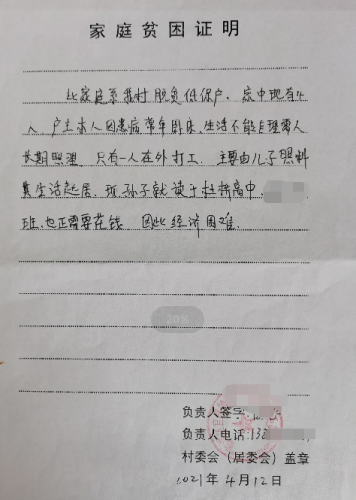 家庭贫困证明
此家庭系我村脱贫低保户。家中现有4
人,户主本人因患病常年卧床,生活不能自理需人
长期照理,只有一人在外打工,主要由儿子照料
其生活起居,现孙子就读于桂桥高中,
班,也正需要花钱,因此经济困难.
20%
负责人签字:
负责人电话:13
村委会(居委会)盖章
2021年4月12日